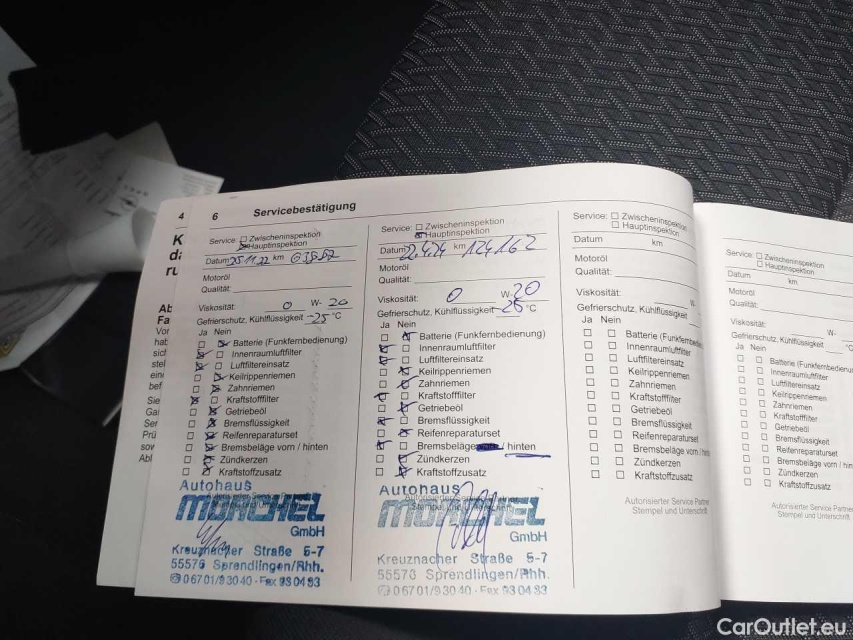 4
K
da
ru
Ab
Fa
Vor
hab
sich
stel
eine
bef
Sie
Gar
Ser
Prü
sow
Abl
6 Servicebestätigung
Service: □ Zwischeninspektion
☒ Hauptinspektion
Datum 25.11.22 km
Motoröl
Qualität:
Viskosität: 0 W- 20
Gefrierschutz, Kühlflüssigkeit -25 °C
Ja Nein
Batterie (Funkfernbedienung)
Innenraumluftfilter
Luftfiltereinsatz
Keilrippenriemen
Zahnriemen
Kraftstofffilter
Getriebeöl
Bremsflüssigkeit
Reifenreparaturset
Bremsbeläge vorn / hinten
Zündkerzen
Kraftstoffzusatz
Autohaus
MÖRCHEL
GmbH
Kreuznacher Straße 5-7
55576 Sprendlingen/Rhh.
✆ 0 67 01/9 30 40 · Fax 93 04 93
Service: □ Zwischeninspektion
☒ Hauptinspektion
Datum 22.4.24 km 124162
Motoröl
Qualität:
Viskosität: 0 W- 20
Gefrierschutz, Kühlflüssigkeit -25 °C
Ja Nein
Batterie (Funkfernbedienung)
Innenraumluftfilter
Luftfiltereinsatz
Keilrippenriemen
Zahnriemen
Kraftstofffilter
Getriebeöl
Bremsflüssigkeit
Reifenreparaturset
Bremsbeläge / hinten
Zündkerzen
Kraftstoffzusatz
Autohaus
Autorisierter Service Partner
Stempel und Unterschrift
MÖRCHEL
GmbH
Kreuznacher Straße 5-7
55576 Sprendlingen/Rhh.
✆ 0 67 01/9 30 40 · Fax 93 04 93
Service: □ Zwischeninspektion
□ Hauptinspektion
Datum km
Motoröl
Qualität:
Viskosität: W-
Gefrierschutz, Kühlflüssigkeit
Ja Nein
Batterie (Funkfernbedienung)
Innenraumluftfilter
Luftfiltereinsatz
Keilrippenriemen
Zahnriemen
Kraftstofffilter
Getriebeöl
Bremsflüssigkeit
Reifenreparaturset
Bremsbeläge vorn / hinten
Zündkerzen
Kraftstoffzusatz
Autorisierter Service Partner
Stempel und Unterschrift
Service: □ Zwischeninspektion
□ Hauptinspektion
Datum km
Motoröl
Qualität:
Viskosität: W-
Gefrierschutz, Kühlflüssigkeit °C
Ja Nein
Batterie (Funkfernbedienu
Innenraumluftfilter
Luftfiltereinsatz
Keilrippenriemen
Zahnriemen
Kraftstofffilter
Getriebeöl
Bremsflüssigkeit
Reifenreparaturset
Bremsbeläge vorn / hinten
Zündkerzen
Kraftstoffzusatz
Autorisierter Service Partner
Stempel und Unterschrift
CarOutlet.eu